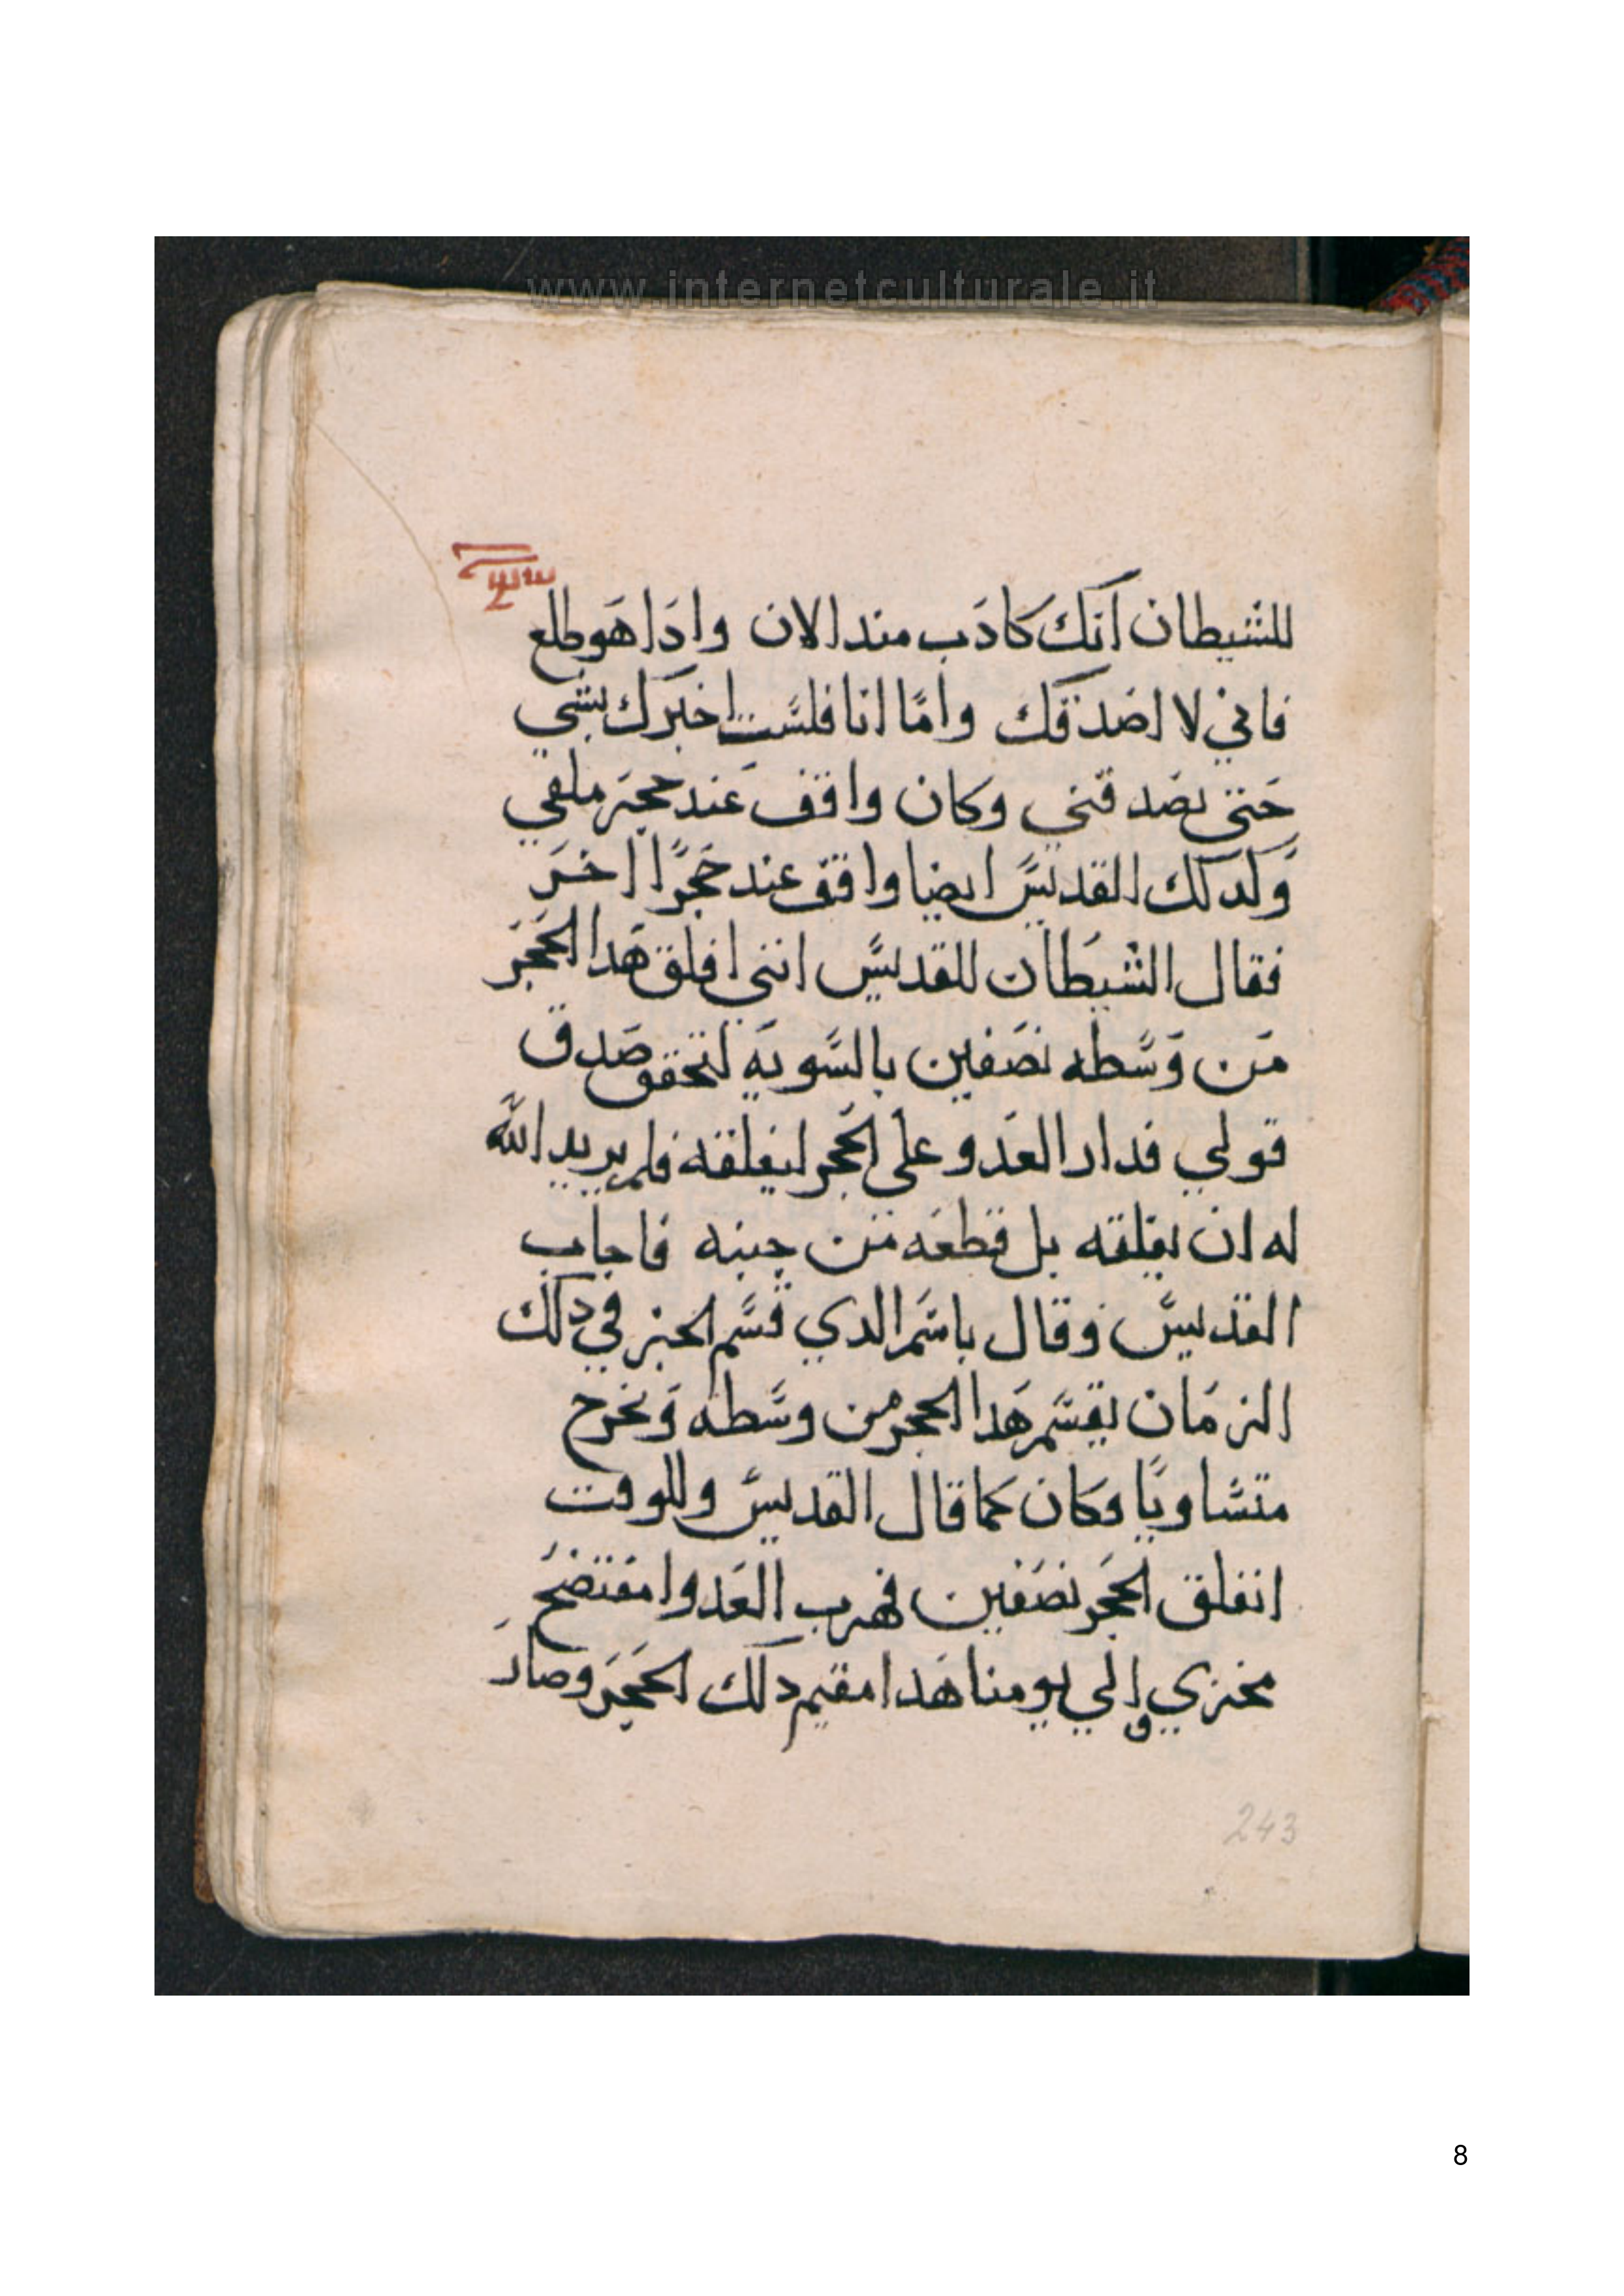 www.internetculturale.it
للشيطان انك كادب مند الان وادا هو طلع
فاني لا اصدقك واما انا فلست اخبرك بشي
حتى تصدقني وكان واقف عند حجر ملقي
ولدلك القديس ايضا واقف عند حجرًا اخر
فقال الشيطان للقديس انني افلق هدا الحجر
من وسطه نصفين بالسويه لتحقق صدق
قولي فدار العدو على الحجر ليفلقه فلم يريد الله
له ان يفلقه بل قطعه من جنبه فاجاب
القديس وقال باسم الدي قسم الخبز في دلك
الزمان يقسم هدا الحجر من وسطه ويخرج
متساويًا وكان كما قال القديس وللوقت
انفلق الحجر نصفين فهرب العدو امفتضح
مخزي والي يومنا هدا مقيم دلك الحجر وصار
243
8